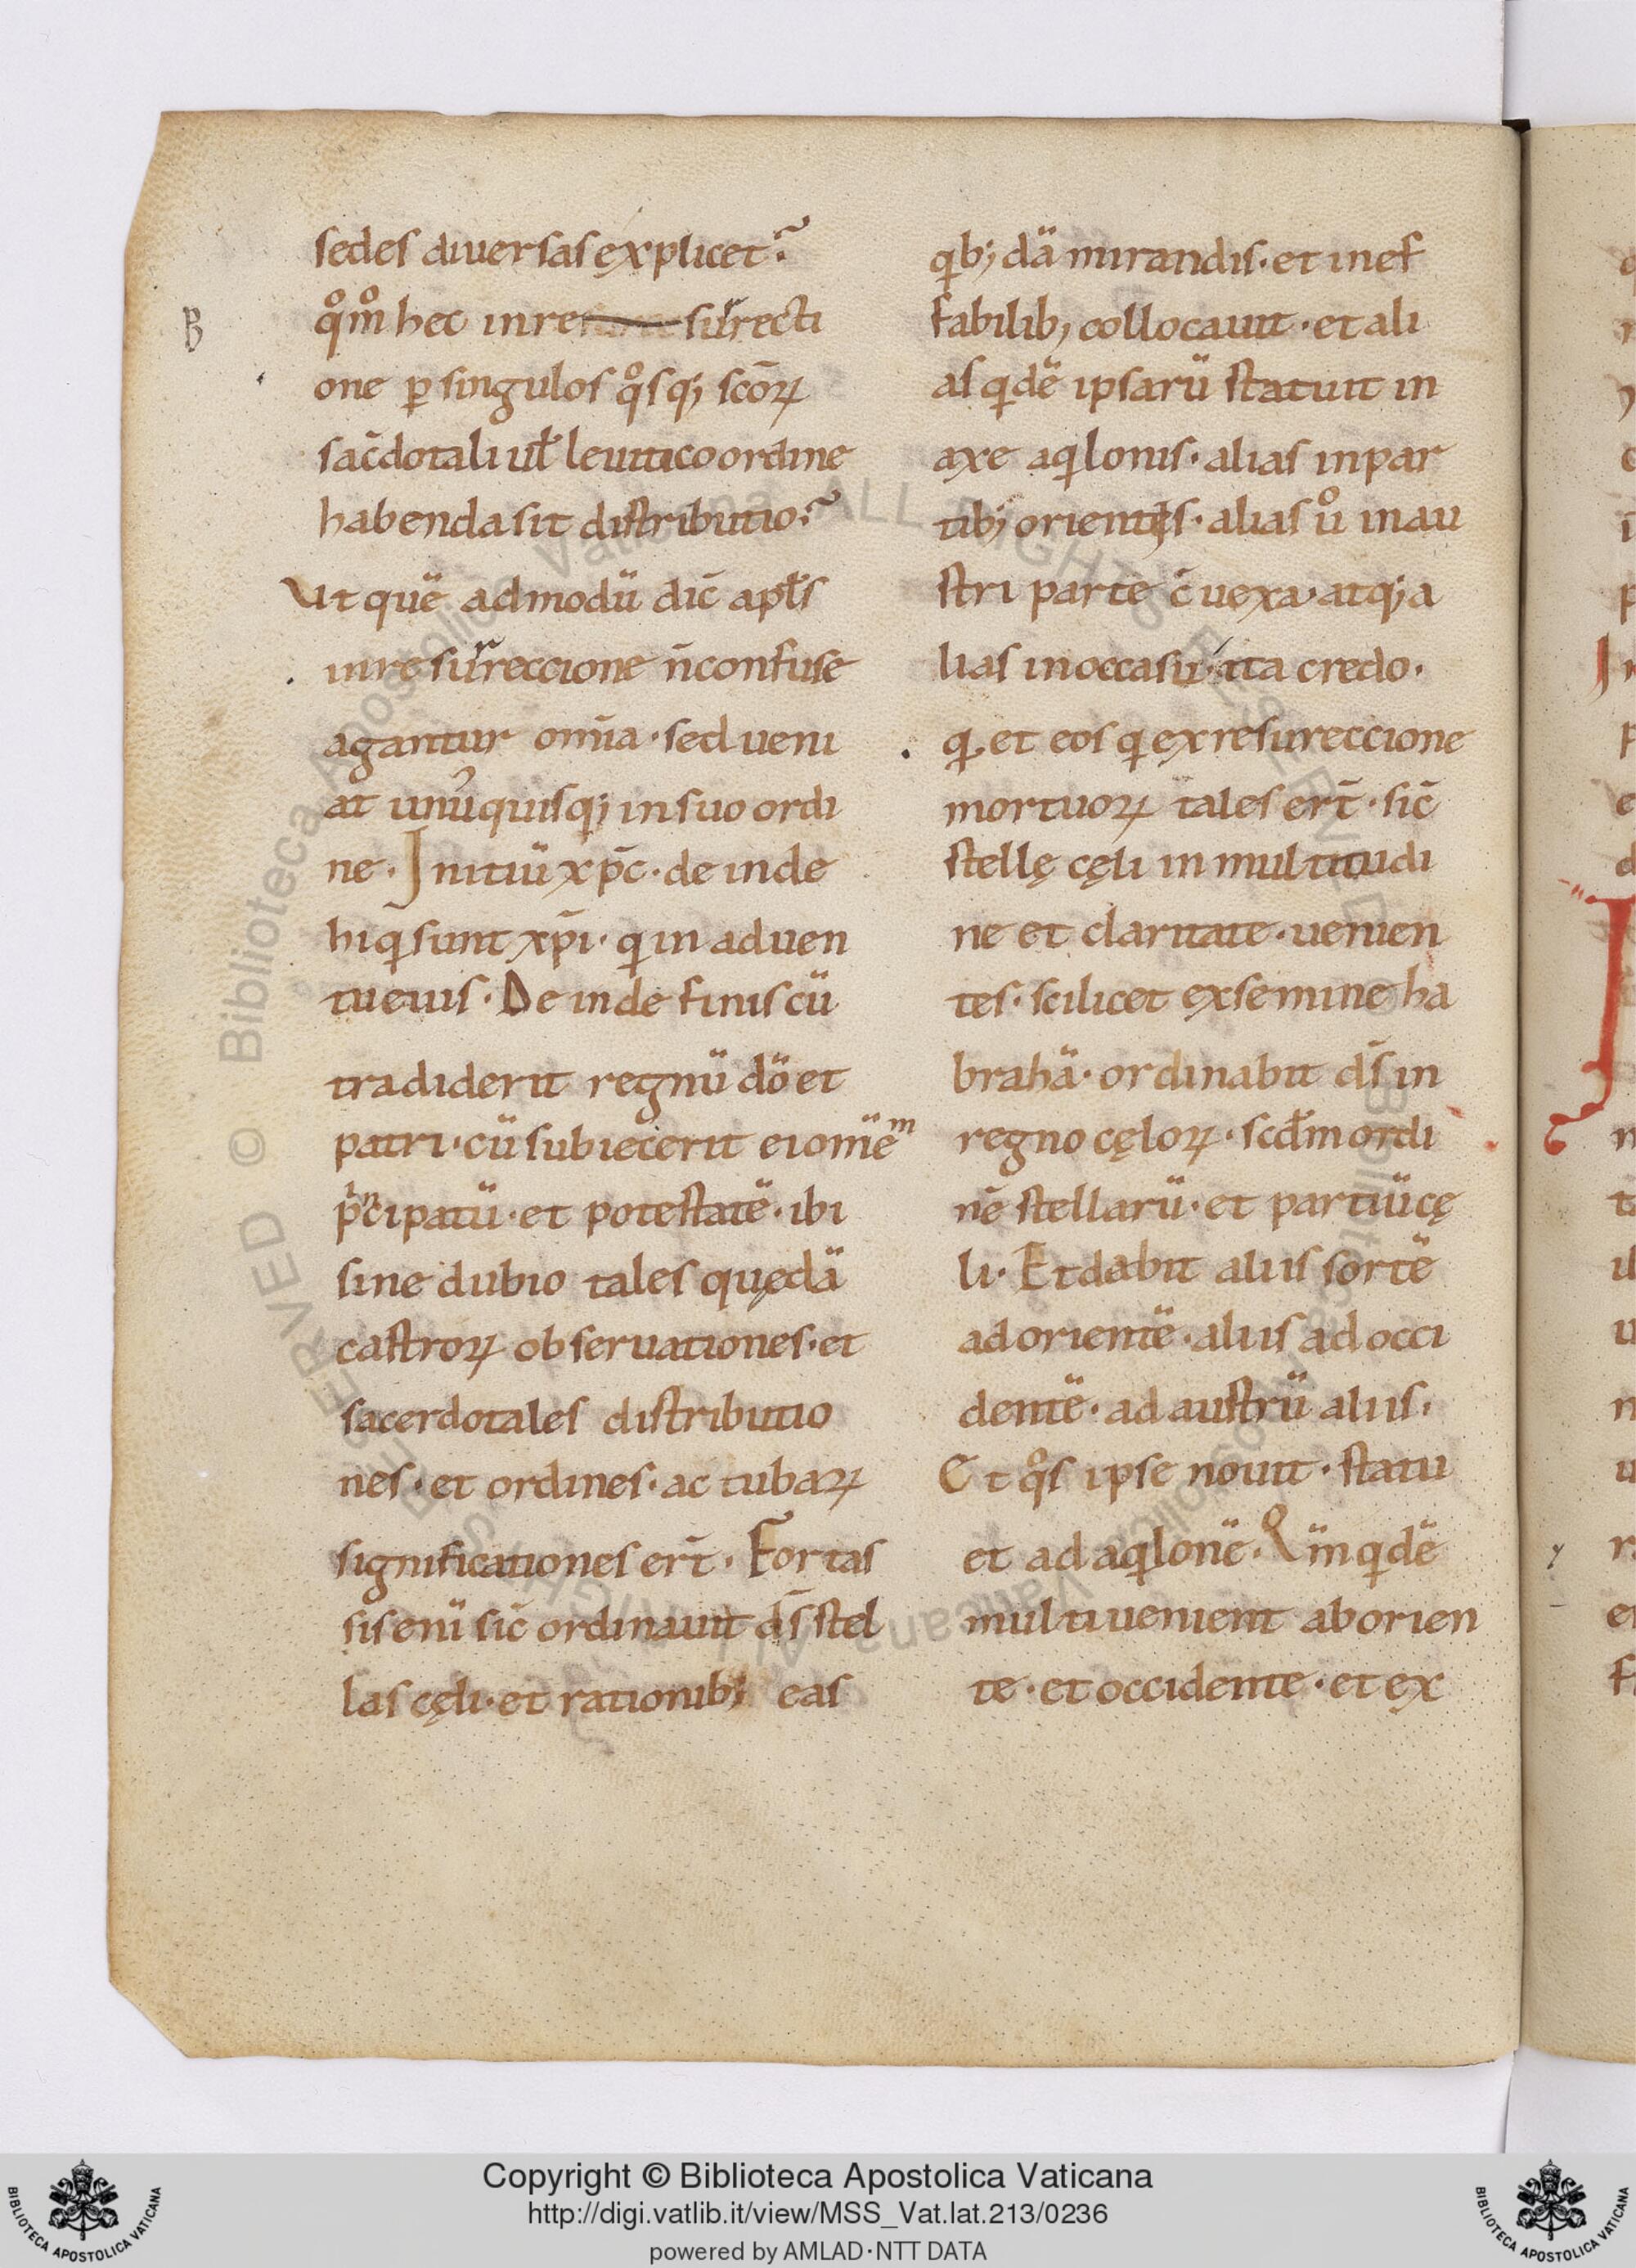 sedes diuersas explicet?
B
qo̊m̊ hec in re surrecti
one ꝑ singulos qͦsq; scōꝝ
sac̄dotali ul̄ leuitico ordine
habenda sit distributio?
Ut quē admodū dic̄ apl̄s
in resurreccione n̄ confuse
agantur omīa · sed ueni
at unusquisq; in suo ordi
ne · Initiū xp̄c · de inde
hi qi sunt xp̄i · qi in aduen
tu eius · De inde finis cū
tradiderit regnū dō et
patri · cū subiecerit ei om̄ēm
pⁱncipatū · et potestatē · ibi
sine dubio tales quędā
castroꝝ obseruationes · et
sacerdotales distributio
nes · et ordines · ac tubaꝝ
significationes er̄t · Fortas
sis enī sic̄ ordinauit ds̄ stel
las cęli · et rationib; eas
qib; dā mirandis · et inef
fabilib; collocauit · et ali
as qidē ipsarū statuit in
axe aqilonis · alias in par
tib; orientis · alias uͦ in au
stri parte c̄uexa · atq; a
lias in occasu · ita credo ·
qi et eos qi ex resureccione
mortuoꝝ tales er̄t · sic̄
stellę cęli in multitudi
ne et claritate · uenien
tes · scilicet ex semine ha
brahā · ordinabit ds̄ in
regno cęloꝝ · scd̄m ordi
nē stellarū · et partiū cę
li · Et dabit aliis sortē
ad orientē · aliis ad occi
dentē · ad austrū aliis ·
Et qͦs ipse nouit · statu
et ad aqilonē · Qm̄ qidē
multi uenient ab orien
te · et occidente · et ex
Copyright © Biblioteca Apostolica Vaticana
http://digi.vatlib.it/view/MSS_Vat.lat.213/0236
powered by AMLAD·NTT DATA
BIBLIOTECA APOSTOLICA VATICANA
BIBLIOTECA APOSTOLICA VATICANA